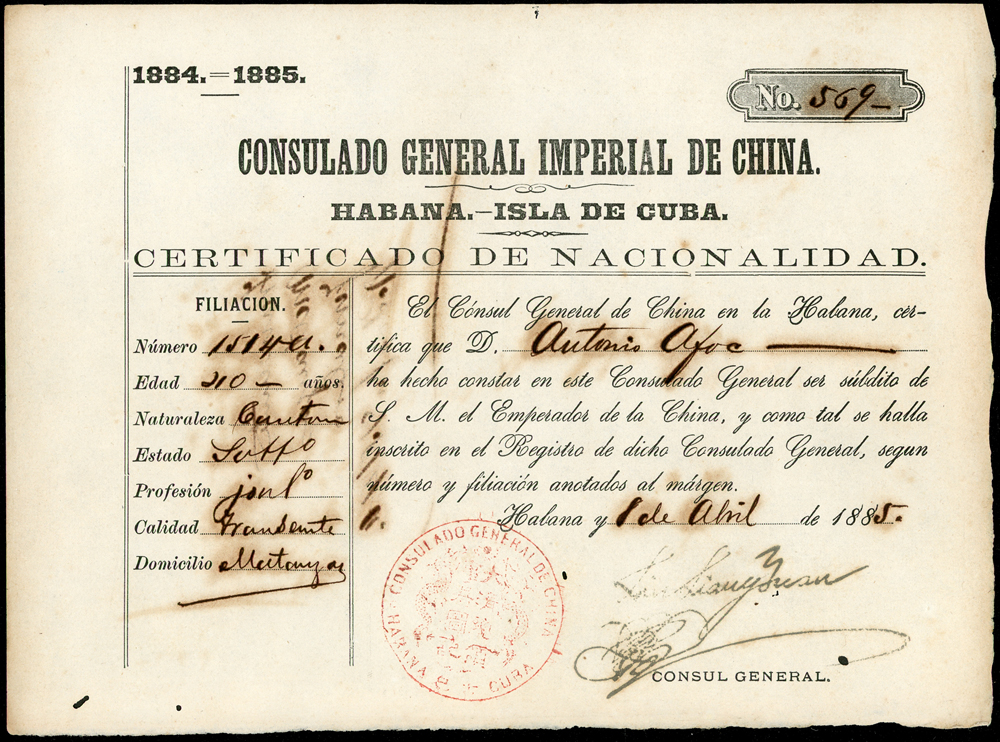 1884.=1885.
No. 569
CONSULADO GENERAL IMPERIAL DE CHINA.
HABANA.–ISLA DE CUBA.
CERTIFICADO DE NACIONALIDAD.
FILIACION.
Número
Edad años.
Naturaleza Canton
Estado
Profesión
Calidad transeunte
Domicilio Matanzas
El Cónsul General de China en la Habana, cer-
tifica que D. Antonio Afoc
ha hecho constar en este Consulado General ser súbdito de
S. M. el Emperador de la China, y como tal se halla
inscrito en el Registro de dicho Consulado General, segun
número y filiación anotados al márgen.
Habana y 8 de Abril de 1885.
CONSULADO GENERAL DE CHINA
HABANA CUBA
CONSUL GENERAL.